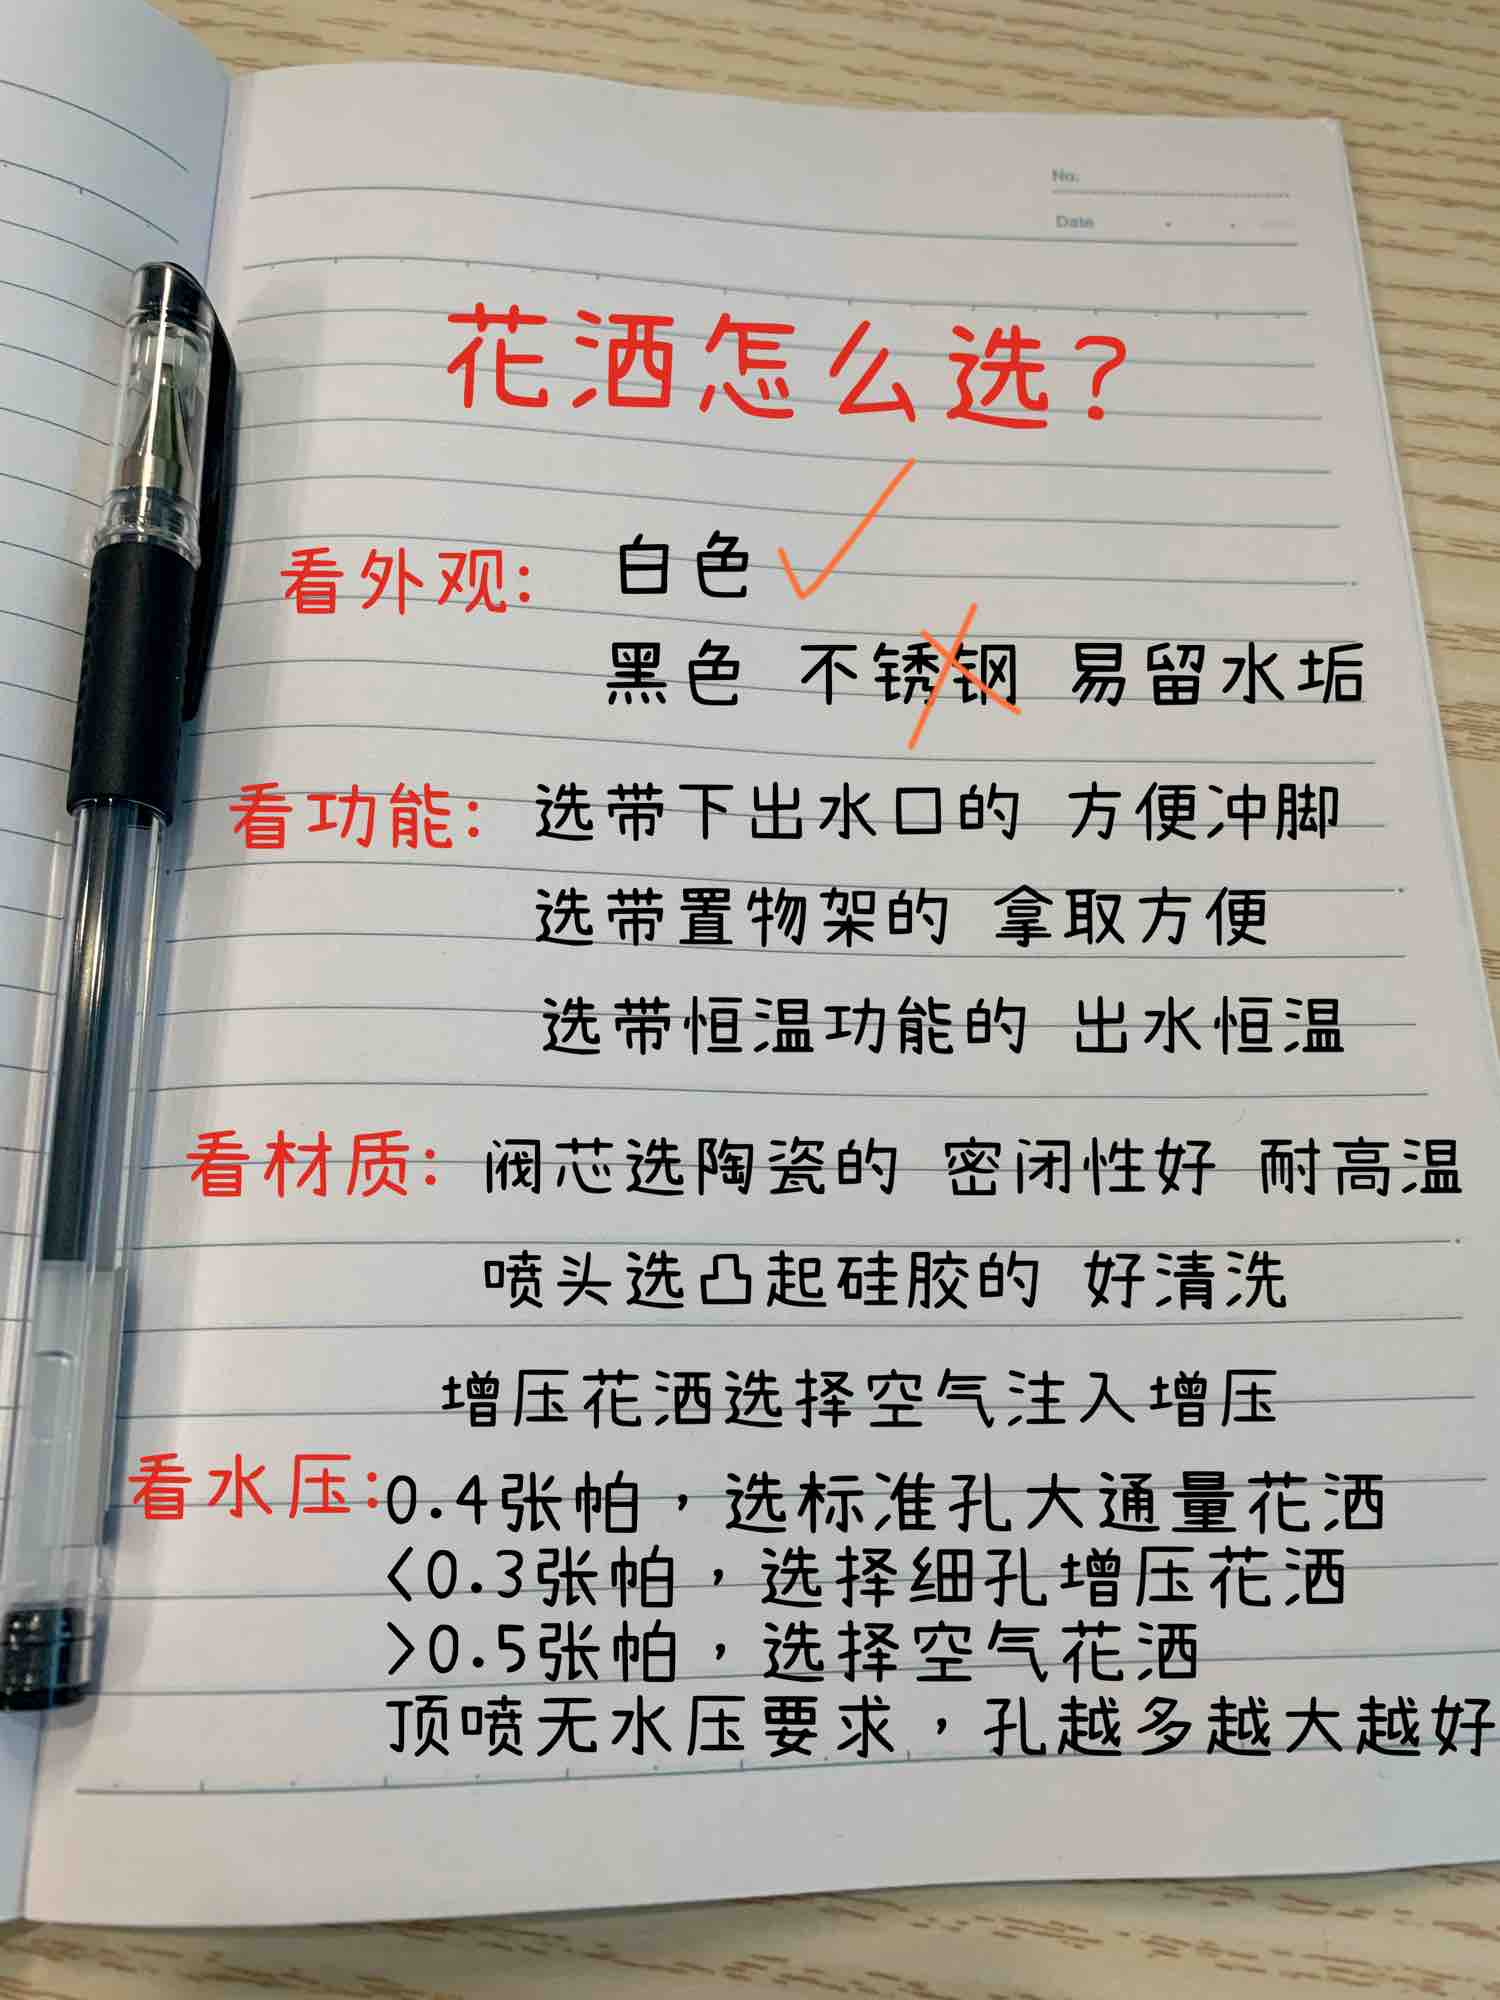 No.
Date
花洒怎么选?
看外观: 白色
黑色 不锈钢 易留水垢
看功能: 选带下出水口的 方便冲脚
选带置物架的 拿取方便
选带恒温功能的 出水恒温
看材质: 阀芯选陶瓷的 密闭性好 耐高温
喷头选凸起硅胶的 好清洗
增压花洒选择空气注入增压
看水压:0.4张帕，选标准孔大通量花洒
<0.3张帕，选择细孔增压花洒
>0.5张帕，选择空气花洒
顶喷无水压要求，孔越多越大越好